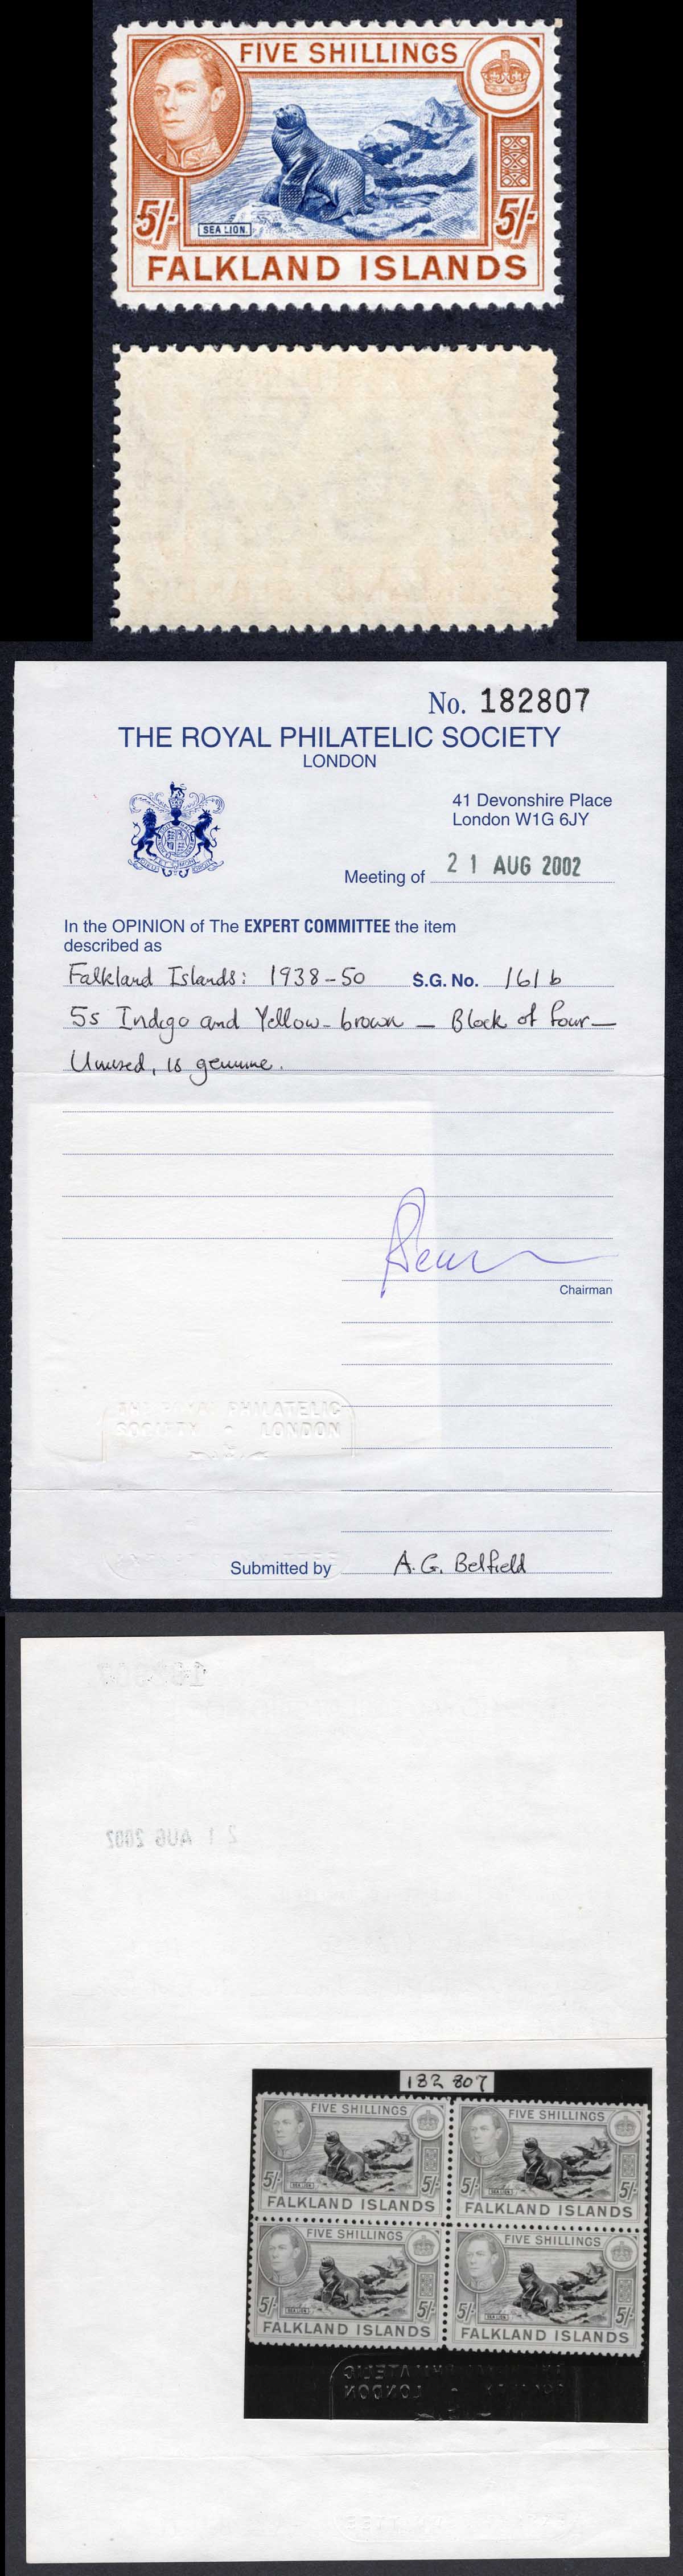 FIVE SHILLINGS
SEA LION.
5/- 5/-
FALKLAND ISLANDS
No. 182807
THE ROYAL PHILATELIC SOCIETY
LONDON
41 Devonshire Place
London W1G 6JY
Meeting of 21 AUG 2002
In the OPINION of The EXPERT COMMITTEE the item
described as
Falkland Islands: 1938-50 S.G. No. 161b
5s Indigo and Yellow-brown — Block of four —
Unused, is genuine.
Chairman
THE ROYAL PHILATELIC
SOCIETY LONDON
Submitted by A.G. Belfield
21 AUG 2002
182 807
FIVE SHILLINGS FIVE SHILLINGS
5/- SEA LION. 5/- 5/- SEA LION. 5/-
FALKLAND ISLANDS FALKLAND ISLANDS
FIVE SHILLINGS FIVE SHILLINGS
5/- SEA LION. 5/- 5/- SEA LION. 5/-
FALKLAND ISLANDS FALKLAND ISLANDS